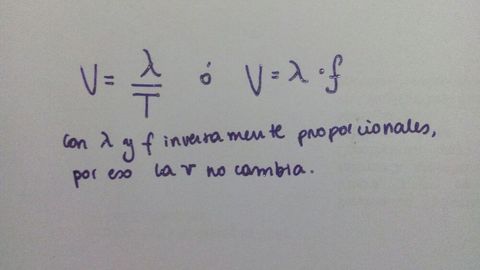 V = λ/T ó V = λ · f
con λ y f inversamente proporcionales,
por eso la v no cambia.